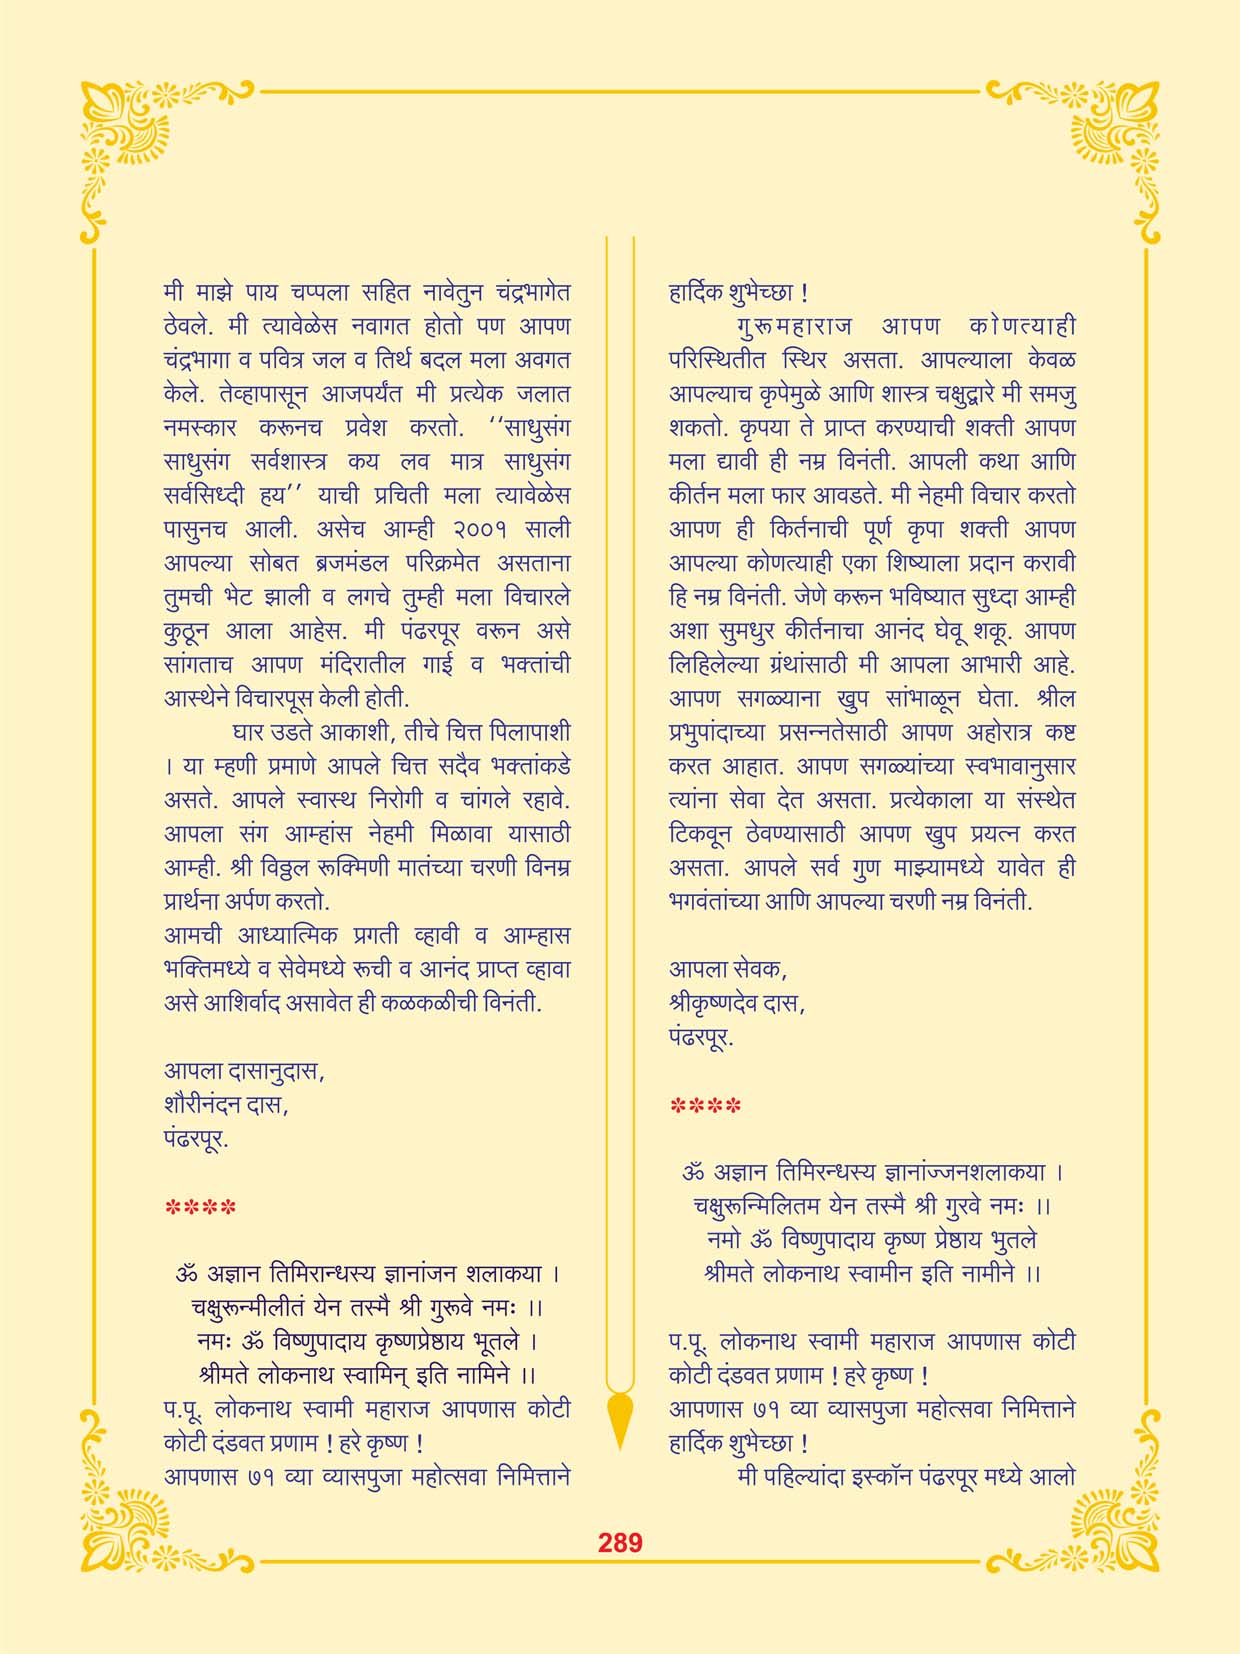 मी माझे पाय चप्पला सहित नावेतुन चंद्रभागेत
ठेवले. मी त्यावेळेस नवागत होतो पण आपण
चंद्रभागा व पवित्र जल व तिर्थ बदल मला अवगत
केले. तेव्हापासून आजपर्यंत मी प्रत्येक जलात
नमस्कार करूनच प्रवेश करतो. ‘‘साधुसंग
साधुसंग सर्वशास्त्र कय लव मात्र साधुसंग
सर्वसिध्दी हय’’ याची प्रचिती मला त्यावेळेस
पासुनच आली. असेच आम्ही २००१ साली
आपल्या सोबत ब्रजमंडल परिक्रमेत असताना
तुमची भेट झाली व लगचे तुम्ही मला विचारले
कुठून आला आहेस. मी पंढरपूर वरून असे
सांगताच आपण मंदिरातील गाई व भक्तांची
आस्थेने विचारपूस केली होती.
घार उडते आकाशी, तीचे चित्त पिलापाशी
। या म्हणी प्रमाणे आपले चित्त सदैव भक्तांकडे
असते. आपले स्वास्थ निरोगी व चांगले रहावे.
आपला संग आम्हांस नेहमी मिळावा यासाठी
आम्ही. श्री विठ्ठल रूक्मिणी मातंच्या चरणी विनम्र
प्रार्थना अर्पण करतो.
आमची आध्यात्मिक प्रगती व्हावी व आम्हास
भक्तिमध्ये व सेवेमध्ये रूची व आनंद प्राप्त व्हावा
असे आशिर्वाद असावेत ही कळकळीची विनंती.
आपला दासानुदास,
शौरीनंदन दास,
पंढरपूर.
****
ॐ अज्ञान तिमिरान्धस्य ज्ञानांजन शलाकया ।
चक्षुरून्मीलीतं येन तस्मै श्री गुरूवे नमः ।।
नमः ॐ विष्णुपादाय कृष्णप्रेष्ठाय भूतले ।
श्रीमते लोकनाथ स्वामिन् इति नामिने ।।
प.पू. लोकनाथ स्वामी महाराज आपणास कोटी
कोटी दंडवत प्रणाम ! हरे कृष्ण !
आपणास ७१ व्या व्यासपुजा महोत्सवा निमित्ताने
हार्दिक शुभेच्छा !
गुरूमहाराज आपण कोणत्याही
परिस्थितीत स्थिर असता. आपल्याला केवळ
आपल्याच कृपेमुळे आणि शास्त्र चक्षुद्वारे मी समजु
शकतो. कृपया ते प्राप्त करण्याची शक्ती आपण
मला द्यावी ही नम्र विनंती. आपली कथा आणि
कीर्तन मला फार आवडते. मी नेहमी विचार करतो
आपण ही किर्तनाची पूर्ण कृपा शक्ती आपण
आपल्या कोणत्याही एका शिष्याला प्रदान करावी
हि नम्र विनंती. जेणे करून भविष्यात सुध्दा आम्ही
अशा सुमधुर कीर्तनाचा आनंद घेवू शकू. आपण
लिहिलेल्या ग्रंथांसाठी मी आपला आभारी आहे.
आपण सगळ्याना खुप सांभाळून घेता. श्रील
प्रभुपांदाच्या प्रसन्नतेसाठी आपण अहोरात्र कष्ट
करत आहात. आपण सगळ्यांच्या स्वभावानुसार
त्यांना सेवा देत असता. प्रत्येकाला या संस्थेत
टिकवून ठेवण्यासाठी आपण खुप प्रयत्न करत
असता. आपले सर्व गुण माझ्यामध्ये यावेत ही
भगवंतांच्या आणि आपल्या चरणी नम्र विनंती.
आपला सेवक,
श्रीकृष्णदेव दास,
पंढरपूर.
****
ॐ अज्ञान तिमिरन्धस्य ज्ञानांज्जनशलाकया ।
चक्षुरून्मिलितम येन तस्मै श्री गुरवे नमः ।।
नमो ॐ विष्णुपादाय कृष्ण प्रेष्ठाय भुतले
श्रीमते लोकनाथ स्वामीन इति नामीने ।।
प.पू. लोकनाथ स्वामी महाराज आपणास कोटी
कोटी दंडवत प्रणाम ! हरे कृष्ण !
आपणास ७१ व्या व्यासपुजा महोत्सवा निमित्ताने
हार्दिक शुभेच्छा !
मी पहिल्यांदा इस्कॉन पंढरपूर मध्ये आलो
289